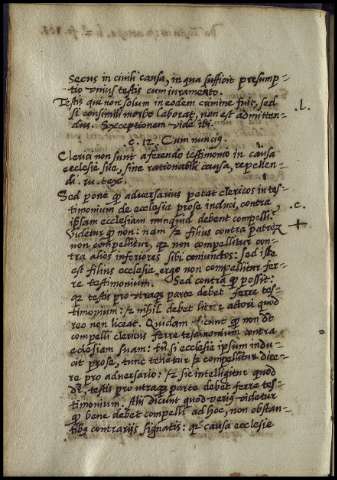 secus in ciuili causa, in qua sufficit presump-
tio vnius testis cum iuramento.
Testis qui non solum in eodem crimine fuit, sed
si consimili morbo laborat, non est admitten-
dus. Exceptionem vide ibi.
c. 12. Cum nuncius.
Clerici non sunt a ferendo testimonio in causa
ecclesie sue, sine rationabili causa, repellen-
di.
Sed pone qp aduersarius petat clericos in tes-
timonium de ecclesia prose induci, contra
ipsam ecclesiam nunquid debent compelli?
videtur qp non: nam sz filius contra patrem
non compellitur, qz non compellitur con-
tra alios inferiores sibi coniunctos: sed iste
est filius ecclesie, ergo non compellitur fer-
re testimonium. Sed contra qp possit:
qz testis pro vtraqz parte debet ferre tes-
timonium: sz nihil debet licere actori quod
reo non liceat. Quidam dicunt qp non dt
compelli clericus ferre testimonium contra
eclesiam suam: tñ si ecclesia ipsum indu-
cit prose, tunc tenetur sz compellitur dice-
re pro aduersario: sz sic intelligitur quod
dr. testis pro vtraqz parte debet ferre tes-
timonium. Alii dicunt quod verius videtur
qp bene debet compelli ad hoc, non obstan-
tibqz contrariis signatis: qz causa ecclesie
.l.
.c.
+